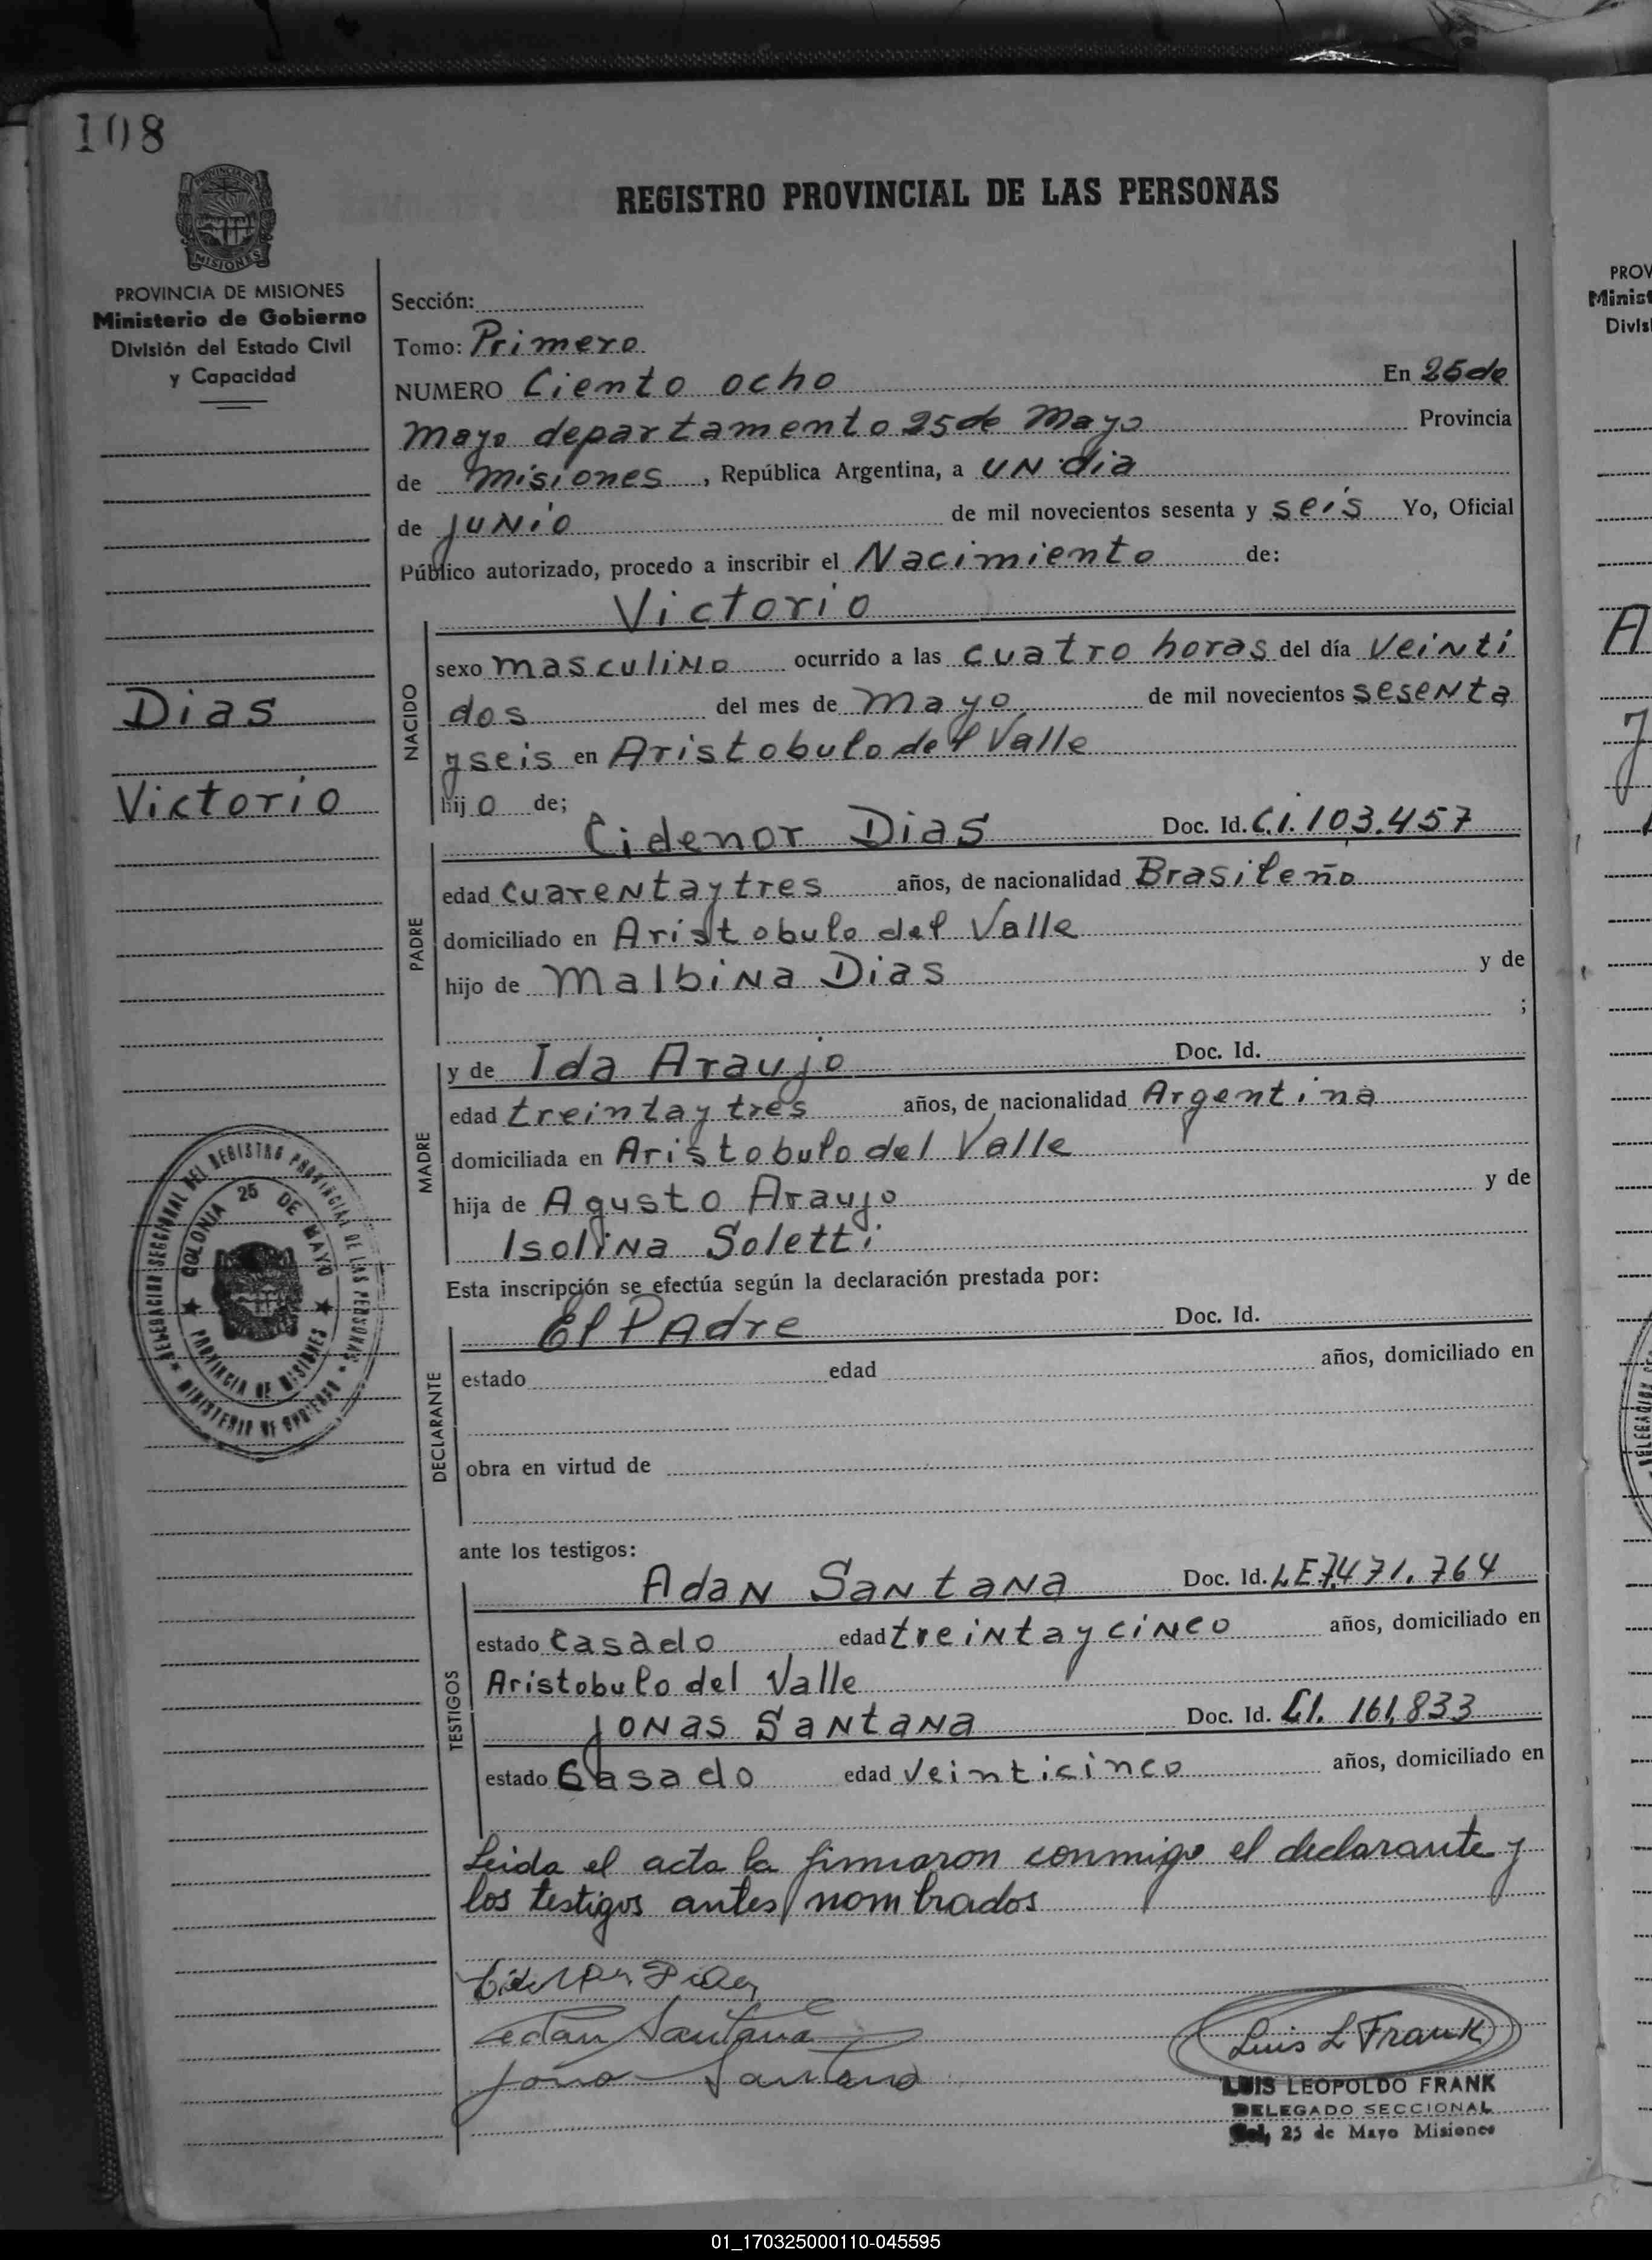 108
PROVINCIA DE
MISIONES
REGISTRO PROVINCIAL DE LAS PERSONAS
PROVINCIA DE MISIONES
Ministerio de Gobierno
División del Estado Civil
y Capacidad
Dias
Victorio
Sección:
Tomo: Primero
NUMERO Ciento ocho En 25 de
Mayo departamento 25 de Mayo Provincia
de Misiones, República Argentina, a UN dia
de junio de mil novecientos sesenta y seis Yo, Oficial
Público autorizado, procedo a inscribir el Nacimiento de:
Victorio
NACIDO
sexo masculino ocurrido a las cuatro horas del día Veinti
dos del mes de Mayo de mil novecientos sesenta
y seis en Aristobulo del Valle
hijo de;
Cidenor Dias Doc. Id. C.i. 103.457
PADRE
edad cuarenta y tres años, de nacionalidad Brasileño
domiciliado en Aristobulo del Valle
hijo de Malbina Dias y de
;
y de Ida Araujo Doc. Id.
MADRE
edad treinta y tres años, de nacionalidad Argentina
domiciliada en Aristobulo del Valle
hija de Agusto Araujo y de
Isolina Soletti
Esta inscripción se efectúa según la declaración prestada por:
El PAdre Doc. Id.
DECLARANTE
estado edad años, domiciliado en
obra en virtud de
ante los testigos:
Adan Santana Doc. Id. LE 7.471.764
TESTIGOS
estado Casado edad treinta y cinco años, domiciliado en
Aristobulo del Valle
Jonas Santana Doc. Id. C.I. 161.833
estado Casado edad Veinticinco años, domiciliado en
Leida el acta la firmaron conmigo el declarante y
los testigos antes nombrados
DELEGACION SECCIONAL DEL REGISTRO PROVINCIAL DE LAS PERSONAS
MINISTERIO DE GOBIERNO
COLONIA 25 DE MAYO
PROVINCIA DE MISIONES
Adan Santana
Jonas Santana
Luis L Frank
LUIS LEOPOLDO FRANK
DELEGADO SECCIONAL
Col, 25 de Mayo Misiones
PROV
Minist
Divis
A
01_170325000110-045595